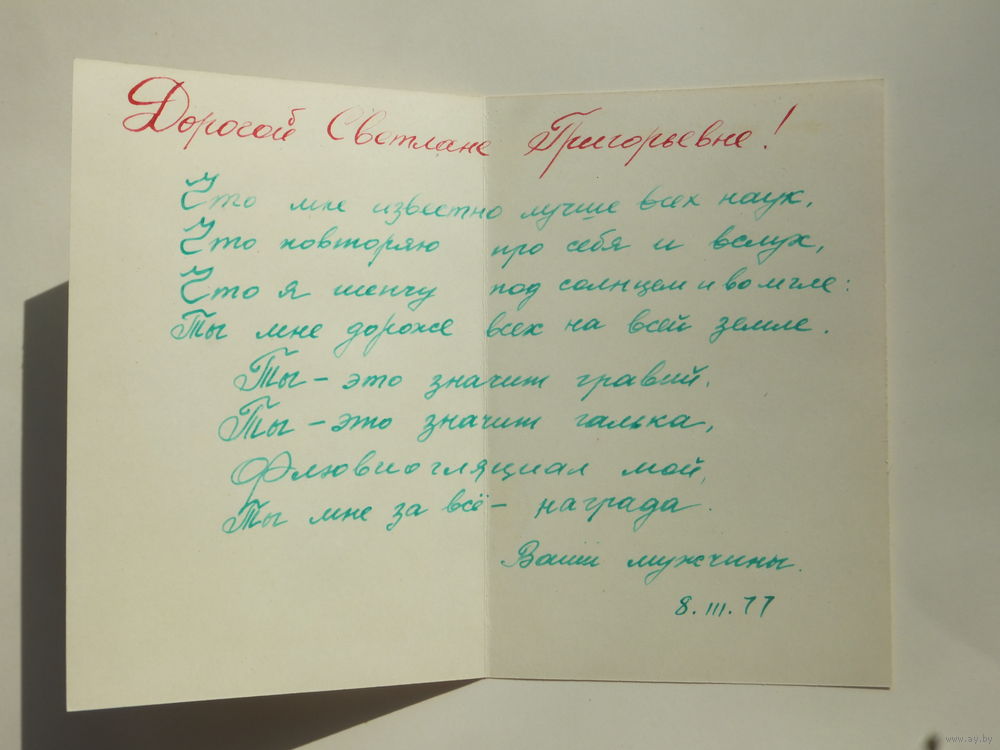 Дорогой Светлане Григорьевне!
Что мне известно лучше всех наук,
Что повторяю про себя и вслух,
Что я шепчу под солнцем и во мгле:
Ты мне дороже всех на всей земле.
Ты – это значит гравий,
Ты – это значит галька,
Флювиогляциал мой,
Ты мне за всё – награда.
Ваши мужчины.
8.III.77
www.ay.by